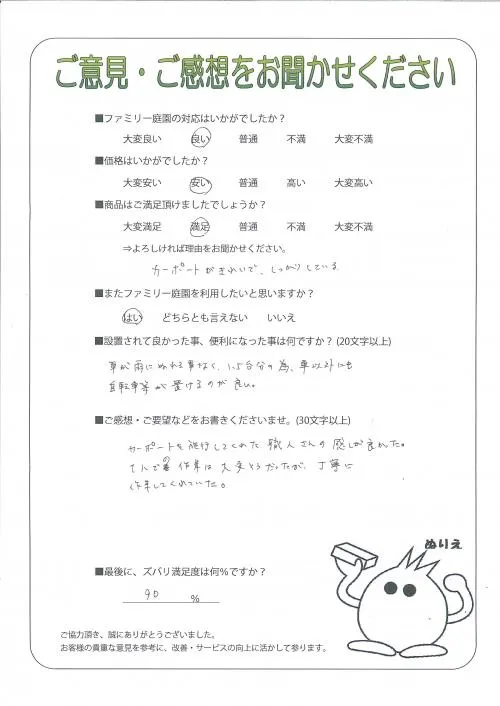 ご意見・ご感想をお聞かせください
■ファミリー庭園の対応はいかがでしたか？
大変良い 良い 普通 不満 大変不満
■価格はいかがでしたか？
大変安い 安い 普通 高い 大変高い
■商品はご満足頂けましたでしょうか？
大変満足 満足 普通 不満 大変不満
⇒よろしければ理由をお聞かせください。
カーポートがきれいで、しっかりしている
■またファミリー庭園を利用したいと思いますか？
はい どちらとも言えない いいえ
■設置されて良かった事、便利になった事は何ですか？(20文字以上)
車が雨にぬれる事なく、1.5台分の為、車以外にも
自転車等が置けるのが良い。
■ご感想・ご要望などをお書きくださいませ。(30文字以上)
カーポートを施行してくれた職人さんの感じが良かった。
1人での作業は大変そうだったが、丁寧に
作業してくれていた。
ぬりえ
■最後に、ズバリ満足度は何％ですか？
90 %
ご協力頂き、誠にありがとうございました。
お客様の貴重な意見を参考に、改善・サービスの向上に活かして参ります。